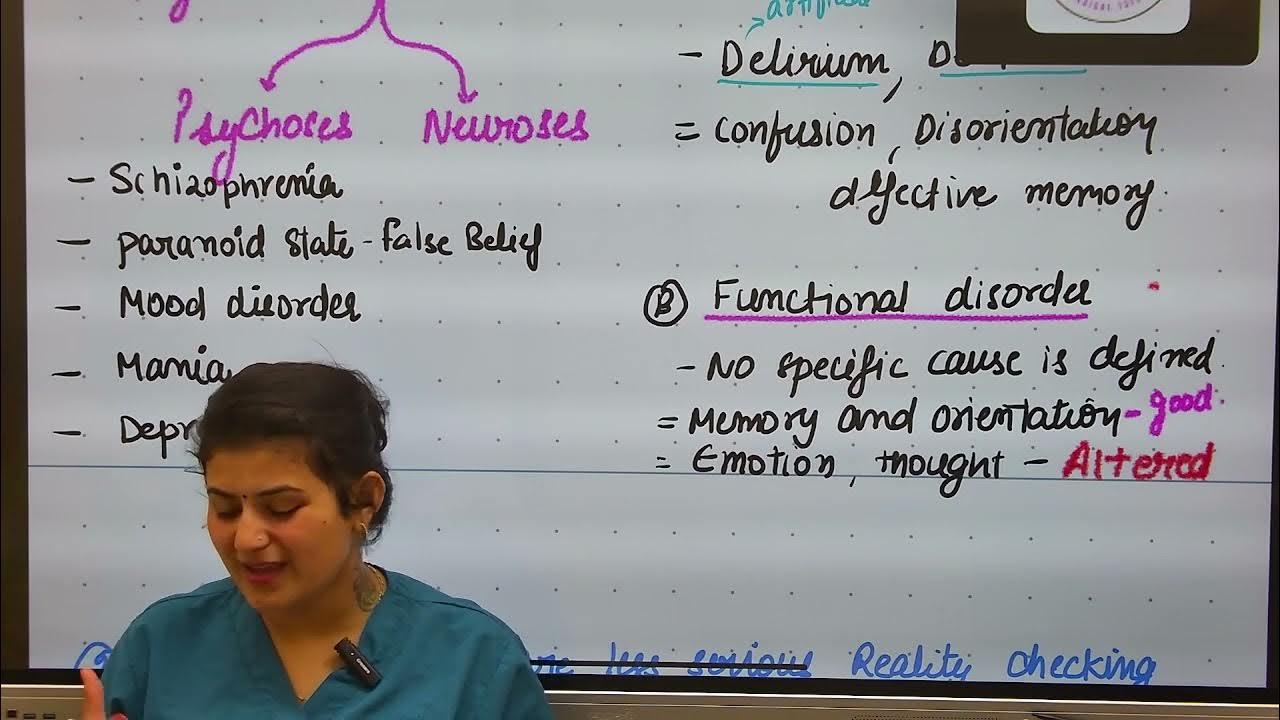 Psychoses Neuroses
- Schizophrenia
- paranoid state - false Belief
- Mood disorder
- Mania
- Delirium,
= confusion, Disorientation
defective memory.
Ⓑ Functional disorder
- No specific cause is defined.
= Memory and orientation - good.
= Emotion, thought - Altered
less serious Reality checking